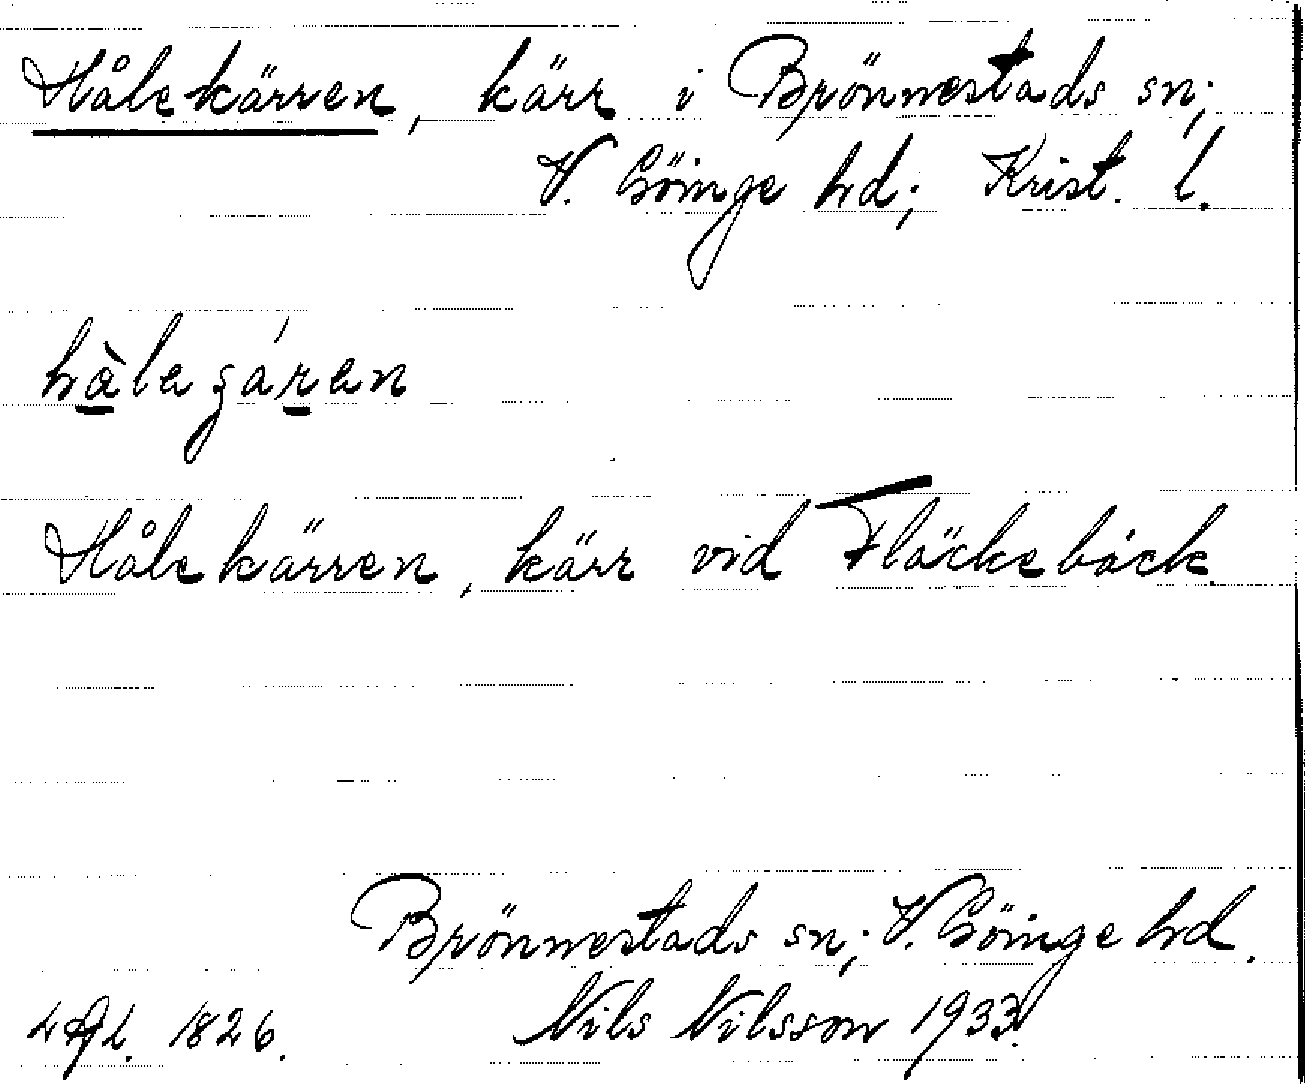 Hålekärren, kärr i Brönnestads sn;
V. Göinge hd; Krist. l.
hàlegáren
Hålekärren, kärr vid Fläckebäck
Brönnestads sn; V. Göinge hd.
1826. Nils Nilsson 1933.